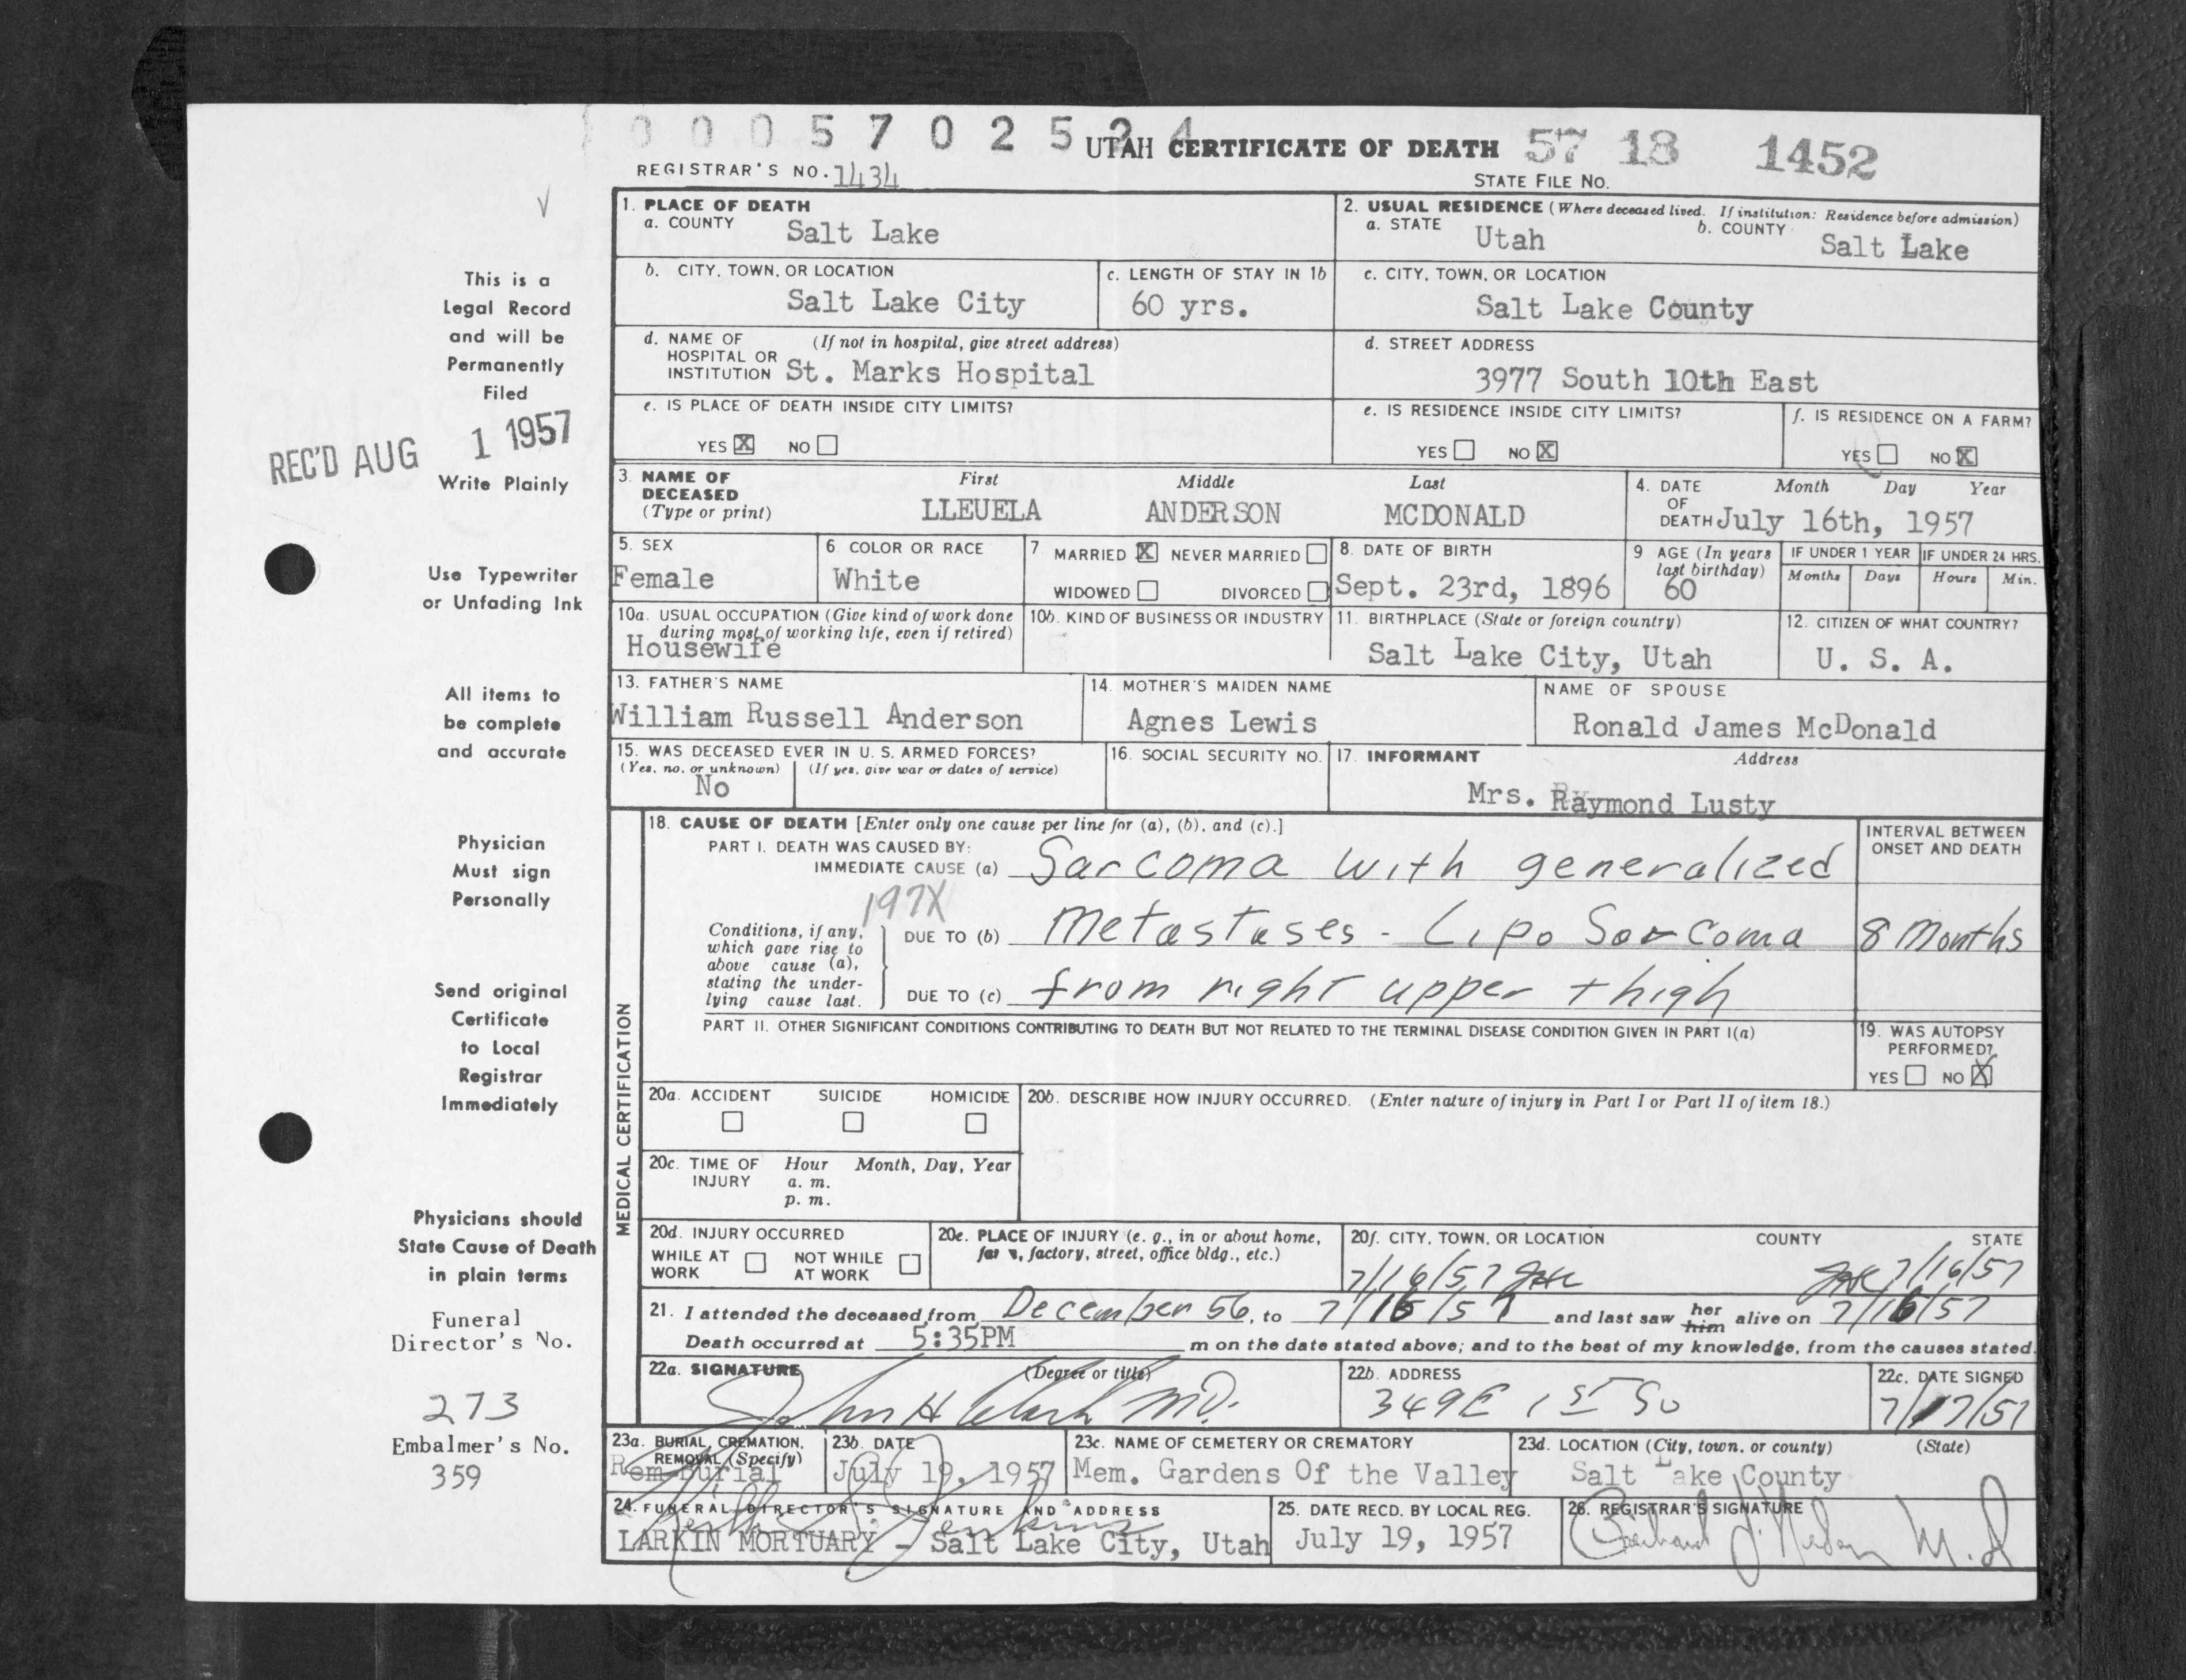 0 0 0 5 7 0 2 5 2 4
UTAH CERTIFICATE OF DEATH 57 18 1452
REGISTRAR'S NO. 1434
STATE FILE NO.
This is a
Legal Record
and will be
Permanently
Filed
REC'D AUG 1 1957
Write Plainly
Use Typewriter
or Unfading Ink
All items to
be complete
and accurate
Physician
Must sign
Personally
Send original
Certificate
to Local
Registrar
Immediately
Physicians should
State Cause of Death
in plain terms
Funeral
Director's No.
273
Embalmer's No.
359
1. PLACE OF DEATH
a. COUNTY Salt Lake
2. USUAL RESIDENCE (Where deceased lived. If institution: Residence before admission)
a. STATE Utah b. COUNTY Salt Lake
b. CITY, TOWN, OR LOCATION
Salt Lake City
c. LENGTH OF STAY IN 1b
60 yrs.
c. CITY, TOWN, OR LOCATION
Salt Lake County
d. NAME OF (If not in hospital, give street address)
HOSPITAL OR
INSTITUTION St. Marks Hospital
d. STREET ADDRESS
3977 South 10th East
e. IS PLACE OF DEATH INSIDE CITY LIMITS?
YES X NO
e. IS RESIDENCE INSIDE CITY LIMITS?
YES NO X
f. IS RESIDENCE ON A FARM?
YES NO X
3. NAME OF
DECEASED
(Type or print)
First Middle Last
LLEUELA ANDERSON MCDONALD
4. DATE Month Day Year
OF
DEATH July 16th, 1957
5. SEX
Female
6. COLOR OR RACE
White
7. MARRIED X NEVER MARRIED
WIDOWED DIVORCED
8. DATE OF BIRTH
Sept. 23rd, 1896
9 AGE (In years
last birthday)
60
IF UNDER 1 YEAR IF UNDER 24 HRS.
Months Days Hours Min.
10a. USUAL OCCUPATION (Give kind of work done
during most of working life, even if retired)
Housewife
10b. KIND OF BUSINESS OR INDUSTRY
11. BIRTHPLACE (State or foreign country)
Salt Lake City, Utah
12. CITIZEN OF WHAT COUNTRY?
U. S. A.
13. FATHER'S NAME
William Russell Anderson
14. MOTHER'S MAIDEN NAME
Agnes Lewis
NAME OF SPOUSE
Ronald James McDonald
15. WAS DECEASED EVER IN U. S. ARMED FORCES?
(Yes, no, or unknown) (If yes, give war or dates of service)
No
16. SOCIAL SECURITY NO.
17. INFORMANT Address
Mrs. Raymond Lusty
MEDICAL CERTIFICATION
18. CAUSE OF DEATH [Enter only one cause per line for (a), (b), and (c).]
PART I. DEATH WAS CAUSED BY:
IMMEDIATE CAUSE (a) Sarcoma with generalized
INTERVAL BETWEEN
ONSET AND DEATH
197X
Conditions, if any,
which gave rise to
above cause (a),
stating the under-
lying cause last.
DUE TO (b) Metastases - Lipo Sarcoma
8 Months
DUE TO (c) from right upper thigh
PART II. OTHER SIGNIFICANT CONDITIONS CONTRIBUTING TO DEATH BUT NOT RELATED TO THE TERMINAL DISEASE CONDITION GIVEN IN PART I(a)
19. WAS AUTOPSY
PERFORMED?
YES NO X
20a. ACCIDENT SUICIDE HOMICIDE
20b. DESCRIBE HOW INJURY OCCURRED. (Enter nature of injury in Part I or Part II of item 18.)
20c. TIME OF Hour Month, Day, Year
INJURY a. m.
p. m.
20d. INJURY OCCURRED
WHILE AT NOT WHILE
WORK AT WORK
20e. PLACE OF INJURY (e. g., in or about home,
farm, factory, street, office bldg., etc.)
20f. CITY, TOWN, OR LOCATION COUNTY STATE
7/16/57 JHC JHC 7/16/57
21. I attended the deceased from December 56, to 7/16/57 and last saw her him alive on 7/16/57
Death occurred at 5:35PM m on the date stated above; and to the best of my knowledge, from the causes stated.
22a. SIGNATURE (Degree or title)
John H Clark MD.
22b. ADDRESS
349 E 1st So
22c. DATE SIGNED
7/17/57
23a. BURIAL, CREMATION,
REMOVAL (Specify)
Rem Burial
23b. DATE
July 19, 1957
23c. NAME OF CEMETERY OR CREMATORY
Mem. Gardens Of the Valley
23d. LOCATION (City, town, or county) (State)
Salt Lake County
24. FUNERAL DIRECTOR'S SIGNATURE AND ADDRESS
Jenkins
LARKIN MORTUARY - Salt Lake City, Utah
25. DATE RECD. BY LOCAL REG.
July 19, 1957
26. REGISTRAR'S SIGNATURE
M.D